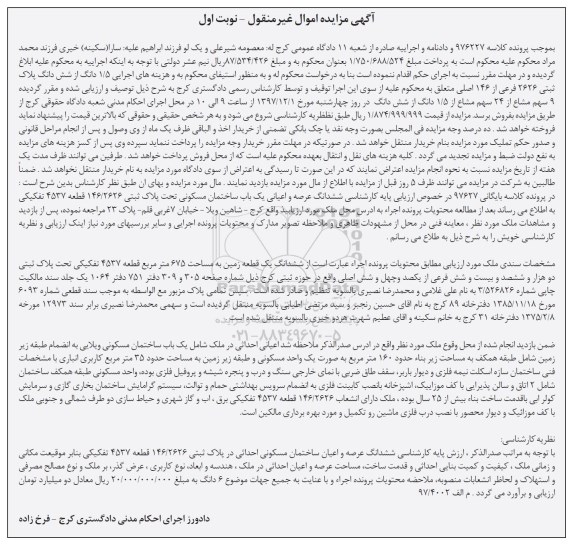 آگهی مزایده اموال غیرمنقول - نوبت اول
بموجب پرونده کلاسه ۹۷۶۲۲۷ و دادنامه و اجراییه صادره از شعبه ۱۱ دادگاه عمومی کرج له: معصومه شیرعلی و یک لو فرزند ابراهیم علیه: سارا(سکینه) خیری فرزند محمد
مراد محکوم علیه محکوم است به پرداخت مبلغ ۱/۷۵۰/۶۸۸/۵۲۴ ریال بعنوان محکوم به و مبلغ ۸۷/۵۳۴/۴۲۶ریال نیم عشر دولتی با توجه به اینکه اجراییه به محکوم علیه ابلاغ
گردیده و در مهلت مقرر نسبت به اجرای حکم اقدام ننموده است بنا به درخواست محکوم له و به منظور استیفای محکوم به و هزینه های اجرایی ۱/۵ دانگ از شش دانگ پلاک
ثبتی ۲۶۲۶ فرعی از ۱۴۶ اصلی متعلق به محکوم علیه از سوی این اجرا توقیف و توسط کارشناس رسمی دادگستری کرج به شرح ذیل توصیف و ارزیابی شده و مقرر گردیده
۹ سهم مشاع از ۲۴ سهم مشاع از ۱/۵ دانگ از شش دانگ در روز چهارشنبه مورخ ۱۳۹۷/۱۲/۱ از ساعت ۹ الی ۱۰ در محل اجرای احکام مدنی شعبه دادگاه حقوقی کرج از
طریق مزایده بفروش برسد. مزایده از قیمت ۱/۸۷۴/۹۹۹/۹۹۹ ریال طبق نظظریه کارشناسی شروع می شود و به هر شخص حقیقی و حقوقی که بالاترین قیمت را پیشنهاد نماید
فروخته خواهد شد. ده درصد وجه مزایده فی المجلس بصورت وجه نقد یا چک بانکی تضمنی از خریدار اخذ و الباقی ظرف یک ماه از وی وصول و پس از انجام مراحل قانونی
و صدور حکم تملیک مورد مزایده بنام خریدار منتقل خواهد شد. در صورتیکه در مهلت مقرر خریدار وجه مزایده را پرداخت ننماید سپرده وی پس از کسر هزینه های مزایده
به نفع دولت ضبط و مزایده تجدید می گردد. کلیه هزینه های نقل و انتقال بعهده محکوم علیه است که از محل فروش پرداخت خواهد شد. طرفین می توانند ظرف مدت یک
هفته از تاریخ مزایده نسبت به نحوه انجام مزایده اعتراض نمایند که در این صورت تا رسیدگی به اعتراض از سوی دادگاه مورد مزایده به نام خریدار منتقل نخواهد شد. ضمناً
طالبین به شرکت در مزایده می توانند ظرف ۵ روز قبل از مزایده با اطلاع از مال مورد مزایده بازدید نمایند. مال مورد مزایده و بهای ان طبق نظر کارشناس بدین شرح است:
در پرونده کلاسه بایگانی ۹۷۶۲۷ در خصوص ارزیابی پایه کارشناسی ششدانگ عرصه و اعیانی یک باب ساختمان مسکونی تحت پلاک ثبتی ۱۴۶/۲۶۲۶ قطعه ۴۵۳۷ تفکیکی
به اطلاع می رساند بعد از مطالعه محتویات پرونده اجراء به ادرس محل ملک مورد ارزیابی واقع کرج - شاهین ویلا - خیابان ۷غربی قلم- پلاک ۲۳ مراجعه نموده، پس از بازدید
و مشاهدات ملک مورد نظر، معاینه فنی در محل از مشهودات ظاهری و ملاحظه تصویر مدارک و محتویات پرونده اجرایی و سایر بررسیهای مورد نیاز اینک ارزیابی و نظریه
کارشناسی خویش را به شرح ذیل به طلاع می رسانم.
مشخصات سندی ملک مورد ارزیابی مطابق محتویات پرونده اجراء عبارت است از ششدانگ یک قطعه زمین به مساحت ۶۷۵ متر مربع قطعه ۴۵۳۷ تفکیکی تحت پلاک ثبتی
دو هزار و ششصد و بیست و شش فرعی از یکصد وچهل و شش اصلی واقع در حوزه ثبتی کرج ذیل شماره صفحه ۳۰۵ و ۳۰۹ دفتر ۷۵۱ دفتر ۱۰۶۴ یک جلد سند مالکیت
چاپی شماره ۳/۵۲۶۸۲۶ به نام علی غلامی و محمدرضا نصیری بالسویه تنظیم و صادر شده است. سپس تمامی پلاک مزبور مع الواسطه به موجب سند قطعی شماره ۶۰۹۳
مورخ ۱۳۸۵/۱۱/۱۸ دفترخانه ۸۹ کرج به نام اقای حسین رنجبر و سید مرتضی اطیابی بالسویه منتقل گردیده است و سهمی محمدرضا نصیری برابر سند ۱۲۹۷۳ مورخه
۱۳۷۵/۲/۸ دفترخانه ۳۱ کرج به خانم سکینه و اقای عظیم شهرت هردو خیری بالسویه منتقل شده است.
ضمن بازدید انجام شده از محل وقوع ملک مورد نظر واقع در ادرس صدرالذکر ملاحظه شد اعیانی احداثی در ملک شامل یک باب ساختمان مسکونی ویلایی به انضمام طبقه زیر
زمین شامل طبقه همکف به مساحت زیر بناء حدود ۱۶۰ متر مربع به صورت یک واحد مسکونی و طبقه زیر زمین به مساحت حدود ۳۵ متر مربع کاربری انباری با مشخصات
فنی ساختمان سازه اسکلت نیمه فلزی و دیوار باربر، سقف طاق ضربی با نمای خارجی سنگ و درب و پنجره شیشه و پروفیل فلزی بوده، واحد مسکونی طبقه همکف ساختمان
شامل ۲ اتاق و سالن پذیرایی با کف موزاییک، اشپزخانه بانصب کابینت فلزی به انضمام سرویس بهداشتی حمام و توالت، سیستم گرامایش ساختمان بخاری گازی و سرمایش
کولر ابی باقدمت ساخت بناء بیش از ۲۵ سال بوده، ملک دارای انشعاب ۱۴۶/۲۶۲۶ قطعه ۴۵۳۷ تفکیکی برق، اب و گاز شهری و حیاط سازی دو طرف شمالی و جنوبی ملک
با کف موزاییک و دیوار محصور با نصب درب فلزی ماشین رو تکمیل و مورد بهره برداری مالکین است.
نظریه کارشناسی:
با توجه به مراتب صدرالذکر، ارزش پایه کارشناسی ششدانگ عرصه و اعیان ساختمان مسکونی احداثی در پلاک ثبتی ۱۴۶/۲۶۲۶ قطعه ۴۵۳۷ تفکیکی بنابر موقیعت مکانی
و زمانی ملک، کیفیت و کمیت بنایی احداثی و قدمت ساخت، مساحت عرصه و اعیان احداثی در ملک، هندسه و ابعاد، نوع کاربری، عرض گذر، بر ملک و نوع مصالح مصرفی
و استهلاک و لحاظر انشعابات منصوبه، ملاحضه محتویات پرونده اجراء و با عنایت به جمیع جهات موضوع ۶ دانگ به مبلغ ۲۰/۰۰۰/۰۰۰/۰۰۰ ریال معادل دو میلیارد تومان
ارزیابی و برآورد می گردد. م الف ۹۷/۴۰۰۲
دادورز اجرای احکام مدنی دادگستری کرج - فرخ زاده
۰۲۱-۸۸۳۴۹۶۷۰-۵